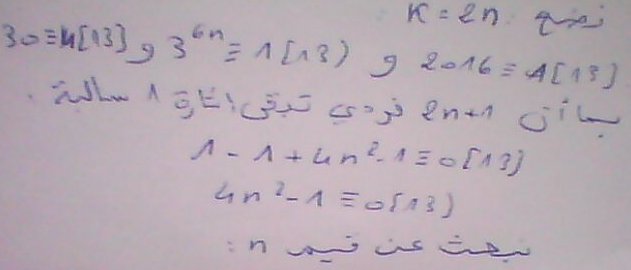 نضع K = 2n
30≡4[13] و 3^{6n} ≡ 1[13) و 2016 ≡ 1[13]
بما أن 2n+1 فردي تبقى إشارة 1 سالبة .
1 - 1 + 4n² - 1 ≡ 0[13]
4n² - 1 ≡ 0[13)
نبحث عن قيم n :